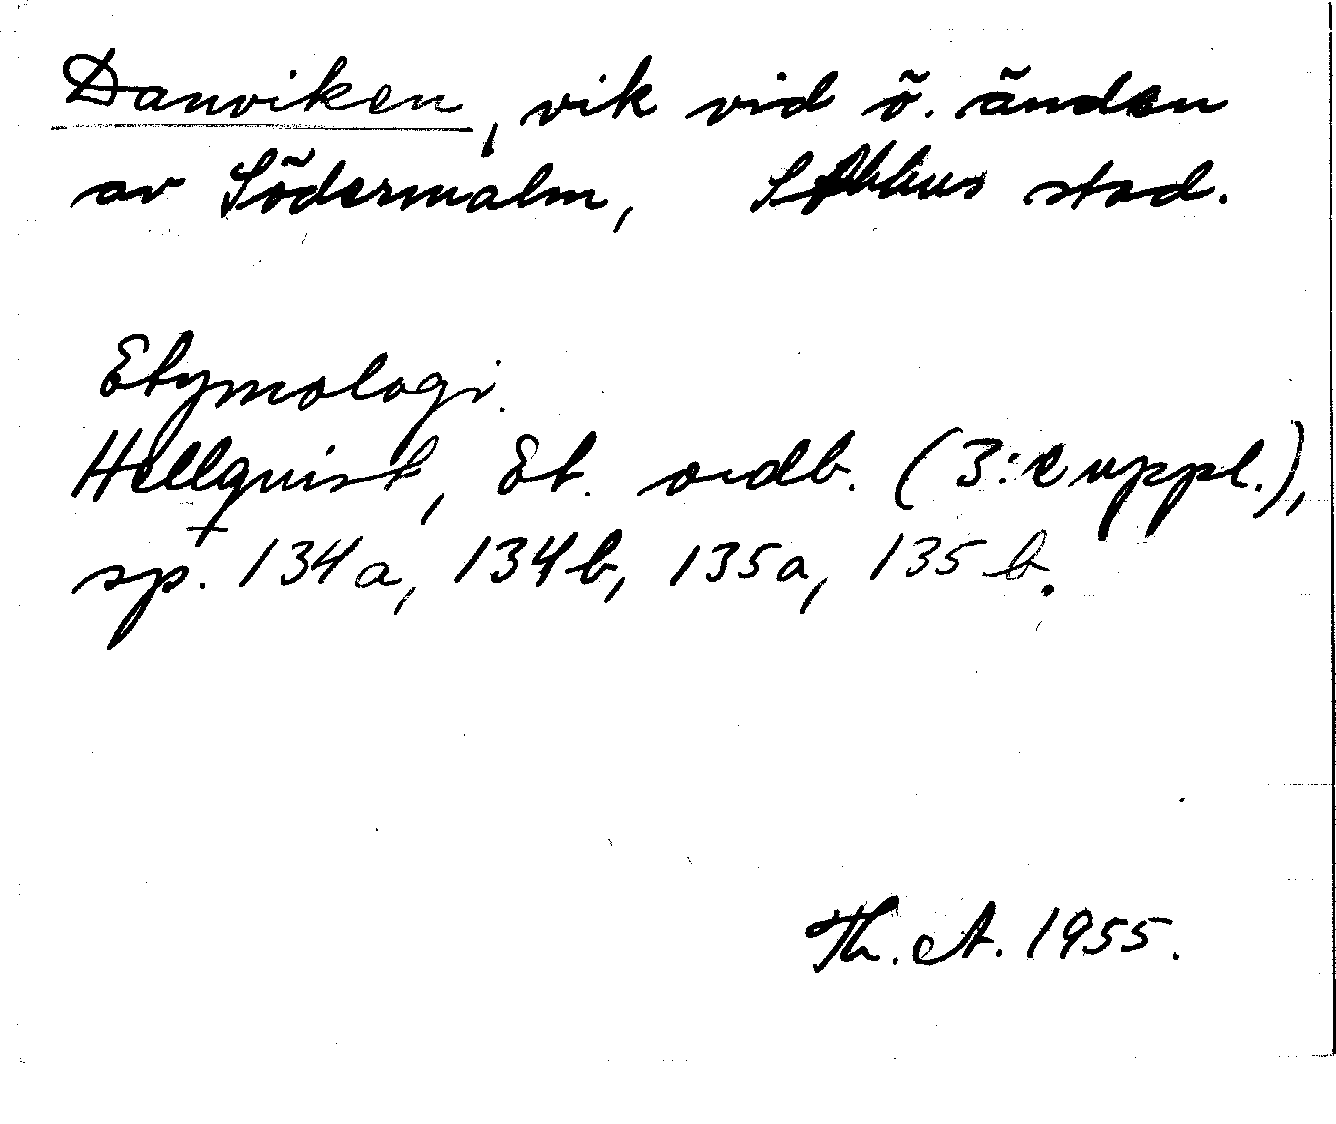 Danviken, vik vid ö. änden
av Södermalm, Sthlms stad.
Etymologi.
Hellquist, Et. ordb. (3:e uppl.),
sp. 134a, 134b, 135a, 135b.
Th. A. 1955.